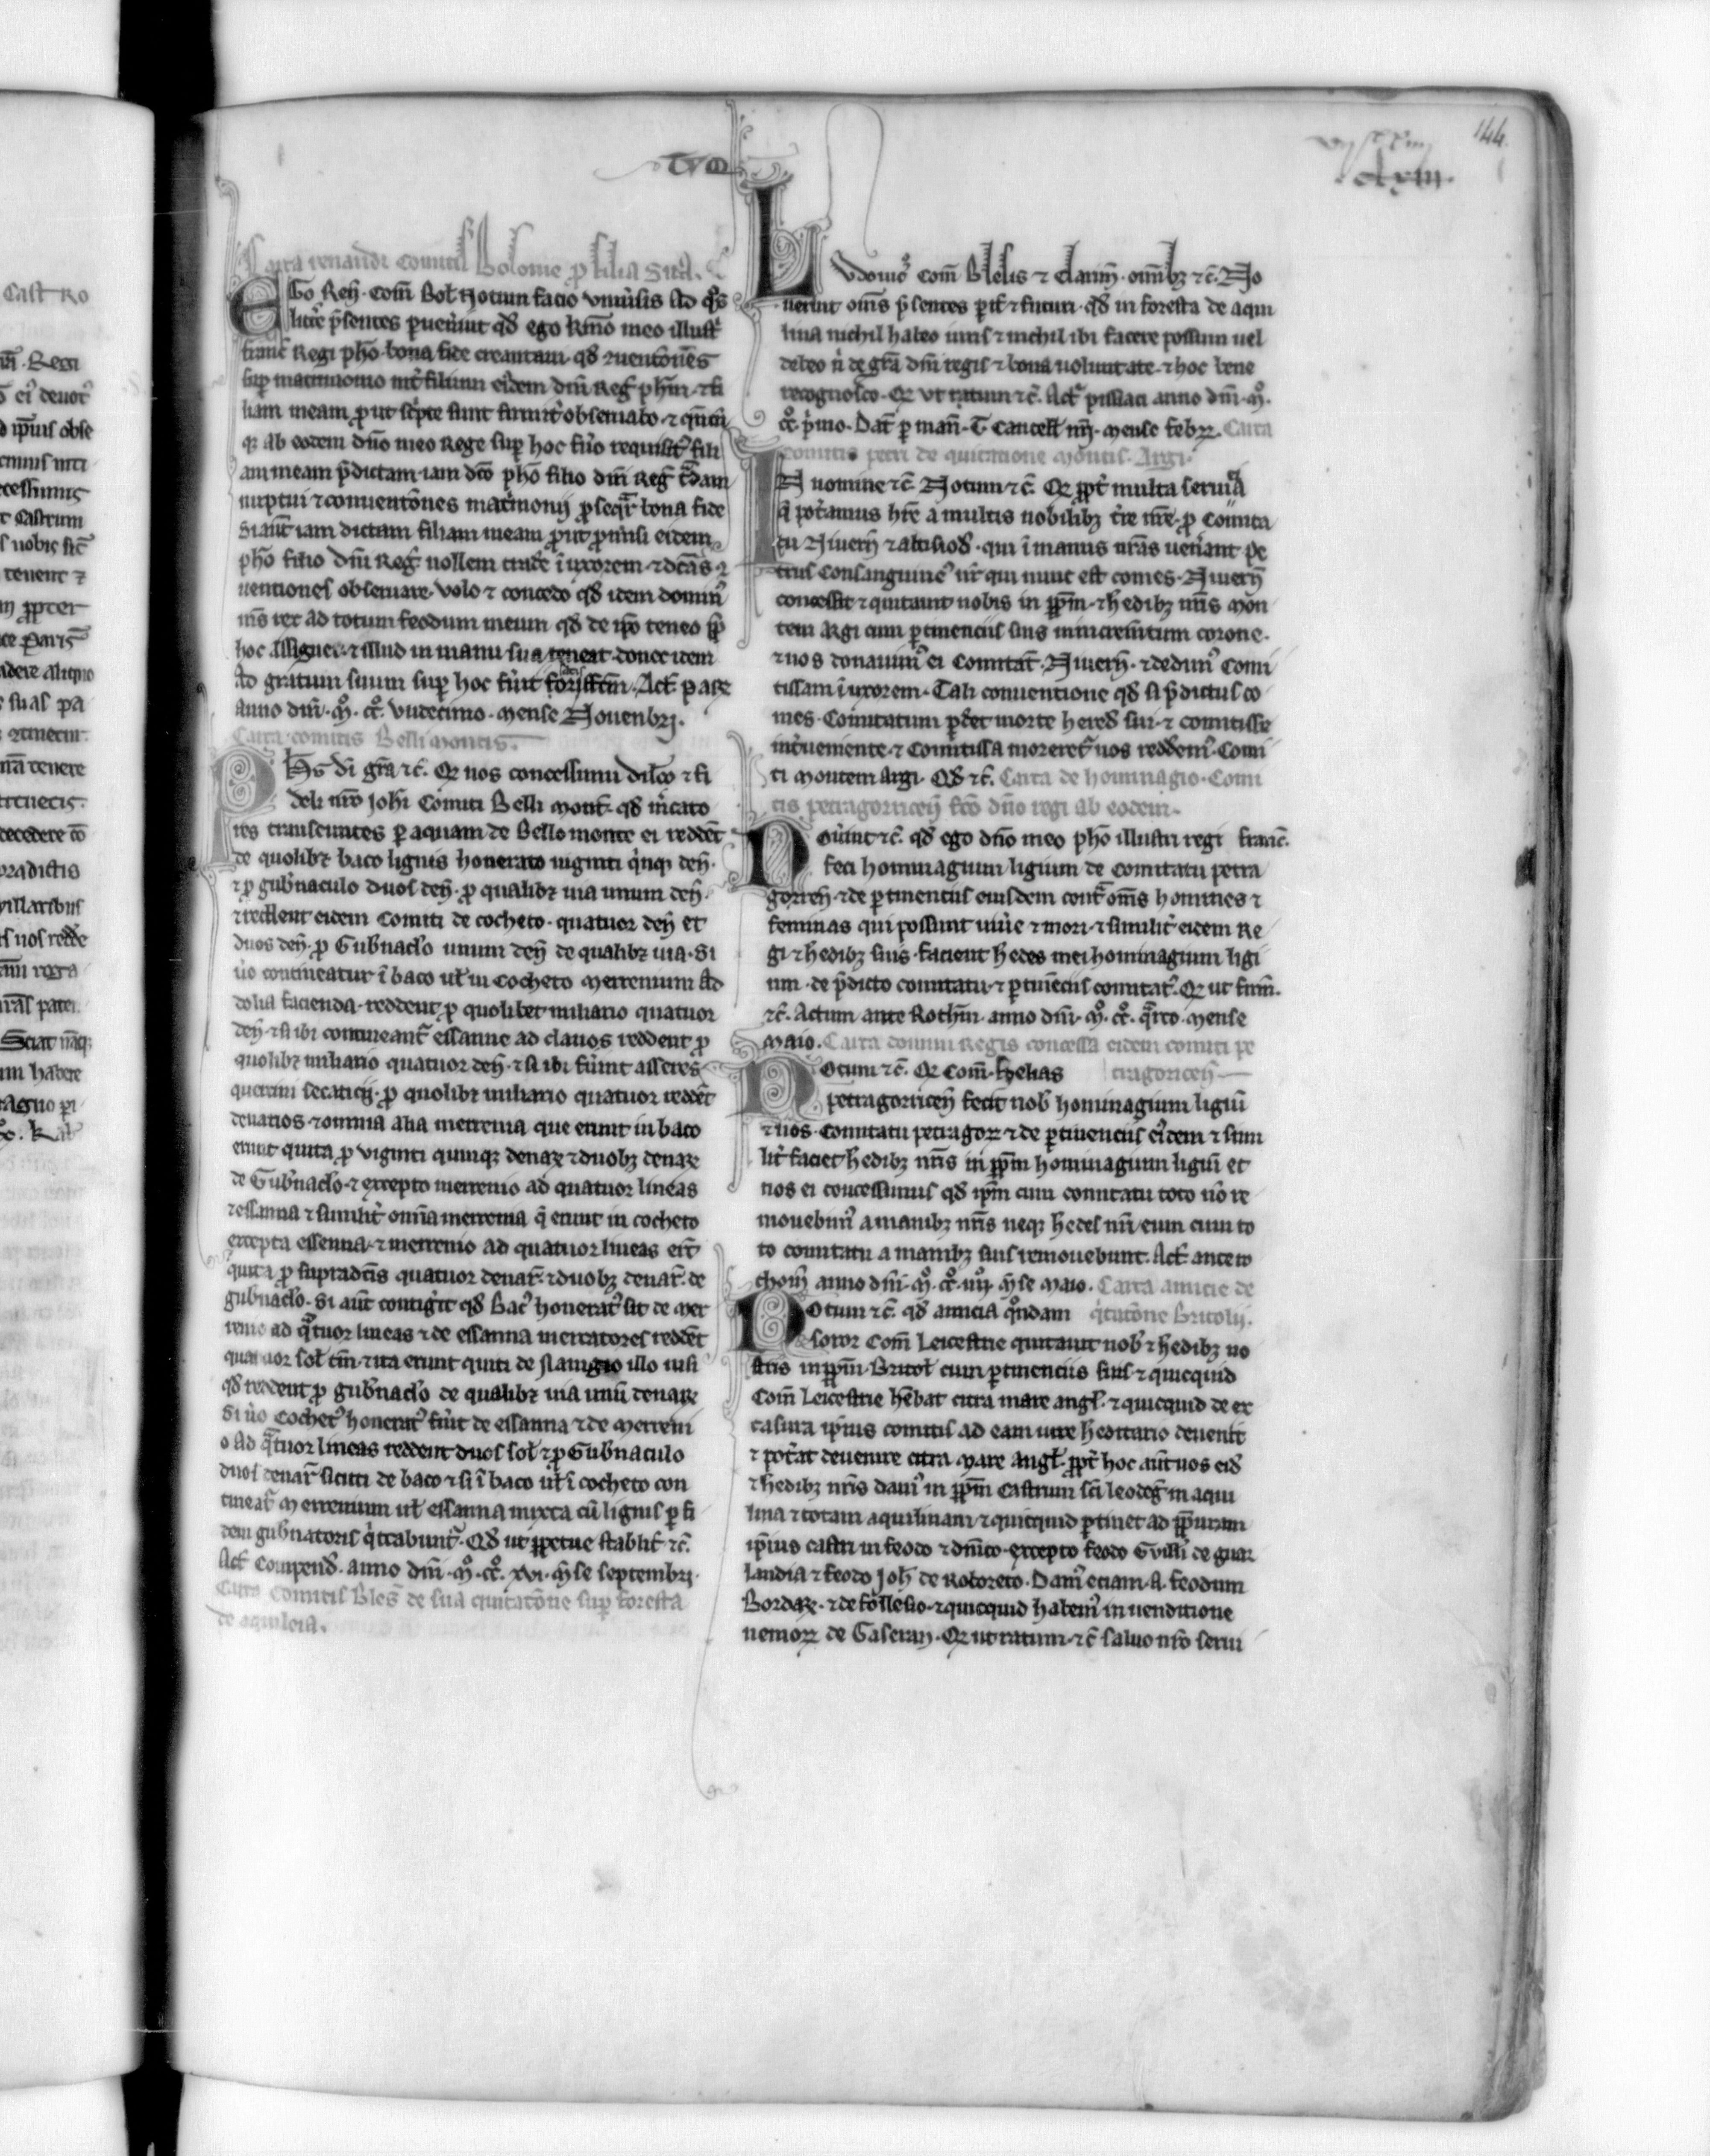 144
.clxiii.
Carta renaudi comitis bolonie ꝓ filia sua.
EGo Reñ. Com̃ Bol̃ Notum facio vniu᷑sis ad qͦs
litt᷑e p̃sentes peruen᷑int qd̃ ego k̃rmo meo illust᷑
franc̃ Regi ph̃o bona fide creantaui qd̃ ↄuent̃ones
sup̱ matrimonio int᷑ filium ei᷑dem dñi Reg̃ ph̃m ⁊ fi
liam meam ꝓut sc᷑pte sunt firmit᷑ obseruabo ⁊ qñcũ
qꝫ ab eodem dño meo Rege sup̱ hoc fu᷑o requisit᷒ fili
am meam p̃dictam iam dc̃o ph̃o filio dñi Reg̃ t᷑dam
nuptui ⁊ conuent̃ones mat᷑monij ꝓseqr᷑ bona fide
Si aũt iam dictam filiam meam ꝓut ꝓmisi eidem
ph̃o filio dñi Reg̃ nollem trade᷑ ĩ uxorem ⁊ dc̃as ↄ
uentiones obseruare. volo ⁊ concedo qd̃ idem domin᷒
m̃s rex ad totum feodum meum qd̃ de ip̃o teneo sup̱
hoc assignet ⁊ illud in manu sua teneat donec idem
Ad gratum suum sup̱ hoc fu᷑it forisfc̃m. Act̃ parꝫ
anno dñi. mͦ. ccͦ. vndecimo. mense Nouenbri.
Carta comitis Belli montis.
Ph̃s di gr̃a ⁊c̃. Qꝫ nos concessimus dilc̃o ⁊ fi
deli nr̃o Joh̃i Comiti Belli mont̃. qd̃ m᷑cato
res transeuntes ꝑ aquam de Bello monte ei reddẽt
de quolibꝫ baco lignis honerato uiginti q̾nqꝫ deñ.
⁊ ꝓ gub᷑naculo duos deñ. ꝓ qualibꝫ uia unum deñ.
⁊ reddent eidem Comiti de cocheto. quatuor deñ et
duos deñ. ꝓ Gub᷑naclo unum deñ de qualibꝫ uia. Si
u᷑o contineatur ĩ baco ul̃ in cocheto merrenium ad
dolia facienda. reddent ꝓ quolibet miliario quatuor
deñ ⁊ si ibi contineant᷑ essanne ad clauos reddent ꝓ
quolibꝫ miliario quatuor deñ ⁊ si ibi fu᷑int asseres
quercini secaticij. ꝓ quolibꝫ miliario quatuor reddẽt
denarios ⁊ omnia alia merrenia que erunt in baco
erunt quita ꝓ viginti quinqꝫ denaꝝ ⁊ duobꝫ denaꝝ
de Gub᷑naclo ⁊ excepto merrenio ad quatuor lineas
⁊ essanna ⁊ similit᷑ om̃ia merrenia q̃ erunt in cocheto
excepta essenna ⁊ merrenio ad quatuor lineas erũt
quita ꝓ supradc̃is quatuor denar̃. ⁊ duobꝫ denar̃. de
gubnaclo. Si aũt contig᷑it qd̃ Bac᷒ honerat᷒ sit de mer
renio ad q̃tuor lineas ⁊ de essanna mercatores reddẽt
quatuor sol̃ tm̃ ⁊ ita erunt quiti de nauigio illo nisi
qd̃ reddent ꝓ gub᷑naclo de qualibꝫ uia unũ denaꝝ
Si u᷑o Cochet᷒ honerat᷒ fu᷑it de essanna ⁊ de merreni
o ad q̃tuor lineas reddent duos sol̃ ⁊ ꝓ Gub᷑naculo
duos denar̃ sicuti de baco ⁊ si ĩ baco ul̃ ĩ cocheto con
tineat᷑ merrenium ul̃ essanna mixta cũ lignis ꝑ fi
dem gub᷑natoris q̾tabunt᷑. Qd̃ ut ꝑpetue stabilit̃ ⁊c̃.
Act̃ Conpend̃. anno dñi. mͦ. ccͦ. xvi. m̃se septembri.
Carta Comitis Bles̃ de sua quitat̃one sup̱ foresta
de aquileia.
Ludouic᷒ com̃ Blesis ⁊ clarim̃. om̃ibꝫ ⁊c̃. No
uerint om̃s p̃sentes pit᷑ ⁊ futuri. qd̃ in foresta de aqui
lina nichil habeo iuris ⁊ nichil ibi facere possum uel
debeo ñ de gr̃a dñi regis ⁊ bona uoluntate ⁊ hoc bene
recognosco. Qꝫ vt ratum ⁊c̃. Act̃ pissiaci anno dñi. mͦ.
ccͦ. p̾mo. Dat̃ ꝑ mañ. T Cancell̃ mñ. mense febꝝ. Carta
comitis petri de quitatione montis Argi.
IN nomine ⁊c̃. Notum ⁊c̃. Qꝫ ꝓpt᷑ multa seruicia
q̃ pot᷑amus hr̃e a multis nobilibꝫ t᷑re nr̃e ꝓ Comita
tu Niuerñ ⁊ altisiod̃. qui ĩ manus nr̃as uen᷑ant pe
trus Consanguine᷒ nr̃ qui nunc est comes Niuerñ
concessit ⁊ quitauit nobis in ꝑpm̃ ⁊ hedibꝫ nr̃is mon
tem Argi cum ꝑtinenciis suis in incrementum corone.
⁊ nos donauim᷒ ei Comitat̃. Niuerñ. ⁊ dedim᷒ Comi
tissam ĩ uxorem. Tali conuentione qd̃ si p̃dictus co
mes. Comitatum ꝑdet morte hered̃ sui ⁊ comitisse
int᷑ueniente ⁊ Comitissa moreret᷑ nos reddem᷒. Comi
ti montem Argi. Qd̃ ⁊c̃. Carta de hominagio. Comi
tis petragoricen̄ fc̃o dño regi ab eodem.
Nou᷑int ⁊c̃. qd̃ ego dño meo ph̃o illustri regi franc̃.
feci hominagium ligium de Comitatu petra
gorreñ. ⁊ de ꝑtinenciis eiusdem cont᷑ om̃s homines ⁊
feminas qui possunt uiue᷑ ⁊ mori. ⁊ similit᷑ eidem Re
gi ⁊ hedibꝫ suis. facient hedes mei hominagium ligi
um. de p̃dicto comitatu ⁊ ꝑtinẽciis comitat᷒. Qꝫ ut firm̃.
⁊c̃. Actum ante Rothm̃. anno dñi. mͦ. ccͦ. q̃rto. mense
maio. Carta domini Regis concessa eidem comiti pe
tragoricen̄
Notum ⁊c̃. Qꝫ Com̃. helias
petragoricen̄ fecit nob̃ hominagium ligiũ
⁊ nos. Comitatu petragoꝝ ⁊ de ꝑtinenciis ei᷒dem ⁊ simi
lit᷑ faciet hedibꝫ nr̃is in ꝑpm̃ hominagium ligiũ et
nos ei concessimus qd̃ ip̃m cum comitatu toto ñ re
mouebim᷒ a manibꝫ nr̃is neqꝫ hedes nr̃i eum cum to
to comitatu a manibꝫ suis remouebunt. Act̃ ante ro
thom̃ anno dñi. mͦ. ccͦ. iiijͦ. m̃se maio. Carta amicie de
q̾tat̃one Britolij.
Notum ⁊c̃. qd̃ amicia q̃ndam
soror Com̃ Leicestrie quitauit nob̃ ⁊ hedibꝫ no
stris in ꝑpm̃. Britol̃ cum ꝑtinenciis suis ⁊ quicquid
Com̃ Leicestrie hẽbat citra mare angl̃. ⁊ quicquid de ex
casura ip̃ius comitis ad eam iure heditario deuenit
⁊ pot᷑at deuenire citra mare angl̃. ꝓpt᷑ hoc aũt nos eid̃
⁊ hedibꝫ nr̃is dauim᷒ in ꝑpm̃ Castrum sc̃i leodeg̃ in aqui
lina ⁊ totam aquilinam ⁊ quicquid ꝑtinet ad
ip̃ius castri in feodo ⁊ dñico excepto feodo Guill̃i de guar
landia ⁊ feodo Joh̃ de Roboreto. Dam᷒ etiam. A. feodum
⁊ quicquid habem᷒ in uenditione
nemoꝝ de Gaseran. Qꝫ ut ratum ⁊c̃ saluo nr̃o serui